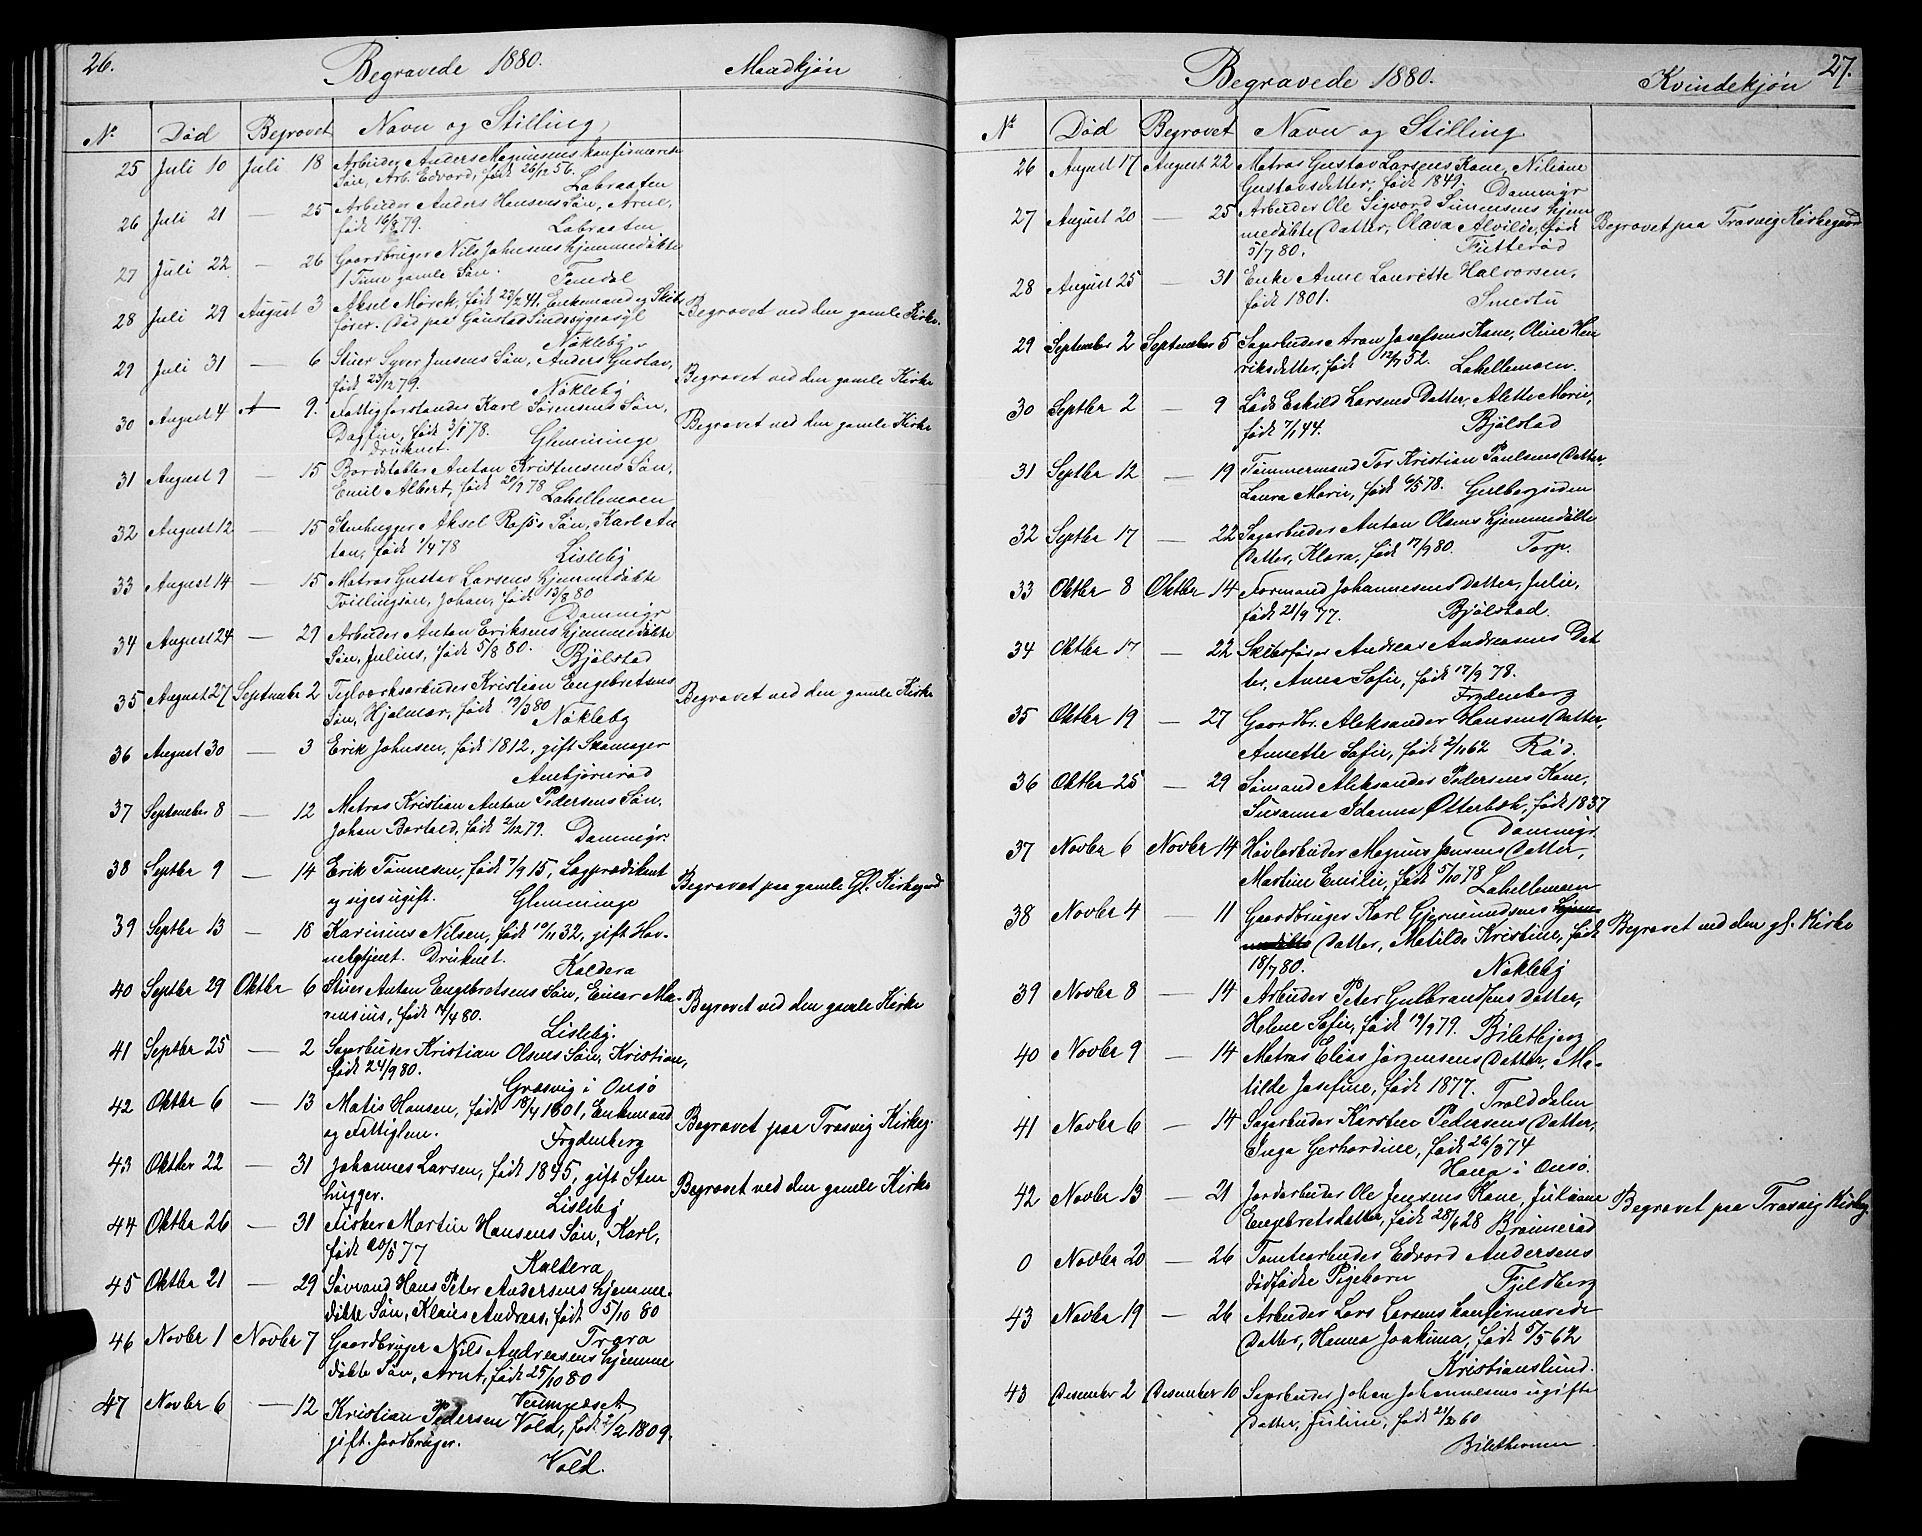 26.
Begravede 1880.
Mandkjøn
No Død Begravet Navn og Stilling
25 Juli 10 Juli 18 Arbeider Anders Magnusens konfirmerede
Søn, Arb. Edvard, født 26/12 56. Labraaten
26 Juli 21 — 25 Arbeider Anders Hansens Søn, Arne,
født 16/8 79. Labraaten
27 Juli 22 — 26 Gaardbruger Nils Johnsens hjemmedøbte
1 Time gamle Søn. Tendal
28 Juli 29 August 3 Aksel Mørch, født 23/2 41. Enkemand og Skibs
fører. Død paa Gaustad Sindssygeasyl Begravet ved den gamle Kirke.
Nøkleby
29 Juli 31 — 6 Stuer Syver Jensens Søn, Anders Gustav,
født 23/12 79. Nøkleby Begravet ved den gamle Kirke
30 August 4 A— 9. Fattigforstander Karl Sørensens Søn,
Dagfin, født 3/1 78. Glemminge Begravet ved den gamle Kirke
druknet.
31 August 9 — 15 Bordstabler Anton Kristensens Søn,
Emil Albert, født 20/9 78 Lahellemoen
32 August 12 — 15 Stenhugger Aksel Ross's Søn, Karl An
ton, født 1/4 78 Lisleby
33 August 14 — 15 Matros Gustav Larsens hjemmedøbte
Tvillingsøn, Johan, født 13/8 80
Dammyr
34 August 24 — 29 Arbeider Anton Eriksens hjemmedøbte
Søn, Julius, født 5/8 80. Bjølstad
35 August 27 September 2 Teglværksarbeider Kristian Engebretsens
Søn, Hjalmar, født 19/3 80 Nøkleby Begravet ved den gamle Kirke
36 August 30 — 3 Erik Johnsen, født 1812, gift Skomager
Ambjørnrød
37 September 8 — 12 Matros Kristian Anton Pedersens Søn,
Johan Bortold, født 2/12 79. Dammyr.
38 Septbr 9 — 14 Erik Tønnesen, født 7/9 15, Lægprædikant
og siges ugift. Glemminge Begravet paa gamle Gl. Kirkegard
39 Septbr 13 — 18 Karinius Nilsen, født 10/11 32, gift Hav-
nebetjent. Druknet. Kaldera
40 Septbr 29 Oktbr 6 Stuer Anton Engebretsens Søn, Einar Ma-
rensius, født 14/4 80. Begravet ved den gamle Kirke
Lisleby.
41 Septbr 25 — 2 Sagarbeider Kristian Olsens Søn, Kristian,
født 24/9 80. Græsvig i Onsø
42 Oktbr 6 — 13 Matis Hansen, født 18/4 1801, Enkemand
og Fattiglem. Frydenberg Begravet paa Trosvig Kirkeg.
43 Oktbr 22 — 31 Johannes Larsen, født 1845, gift Sten
hugger. Lisleby Begravet ved den gamle Kirke
44 Oktbr 26 — 31 Fisker Martin Hansens Søn, Karl,
født 20/5 77 Kaltera
45 Oktbr 21 — 29 Søvand Hans Peter Andersens hjemme-
døbte Søn, Klaus Andreas, født 5/10 80
Trara
46 Novbr 1 Novbr 7 Gaardbruger Nils Andreasens hjemme
døbte Søn, Arnt, født 25/10 80
47 Novbr 6 — 12 Kristian Pedersen Vold, født 2/2 1809.
gift. Jordbruger.
Vold.
27.
Begravede 1880.
Kvindekjøn
No Død Begravet Navn og Stilling
26 August 17 August 22 Matros Gustav Larsens Kone, Niliane
Gustavsdatter, født 1849. Dammyr
27 August 20 — 25 Arbeider Ole Sigvard Simensens hjem
medøbte Datter, Olava Alvilde, født Begravet paa Trosvig Kirkegaard
5/7 80. Futterød
28 August 25 — 31 Enke Anne Laurette Halvorsen,
født 1801. Smertu
29 September 2 September 5 Sagarbeider Aron Josefsens Kone, Oline Hen
riksdatter, født 12/7 52. Lahellemoen.
30 Septbr 2 — 9 Lods Eskild Larsens Datter, Alette Marie,
født 7/1 44. Bjølstad
31 Septbr 12 — 19 Tømmermand Tor Kristian Paulsens Datter,
Laura Marie, født 6/5 78. Gulbergsiden
32 Septbr 17 — 22 Sagarbeider Anton Olsens hjemmedøbte
Datter, Klara, født 17/9 80. Torp.
33 Oktbr 8 Oktbr 14 Formand Johannesens Datter, Julie,
født 21/9 77. Bjølstad.
34 Oktbr 17 — 22 Skibsfører Andreas Andreasens Dat
ter, Anna Sofie, født 17/9 78.
Frydenberg
35 Oktbr 19 — 27 Gaardbr. Aleksander Hansens Datter,
Annette Sofie, født 2/11 62 Rød.
36 Oktbr 25 — 29 Sømand Aleksander Pedersens Kone,
Susanna Idanna Otterbek, født 1837
Dammyr
37 Novbr 6 Novbr 14 Høvlarbeider Magnus Jensens Datter,
Martine Emilie, født 5/10 78 Lahellemoen
38 Novbr 4 — 11 Gaardbruger Karl Gjermundsens hjem-
medøbte Datter, Matilde Kristine, født Begravet ved den gl. Kirke
18/7 80. Nøkleby
39 Novbr 8 — 14 Arbeider Peter Gulbrandsens Datter,
Helene Sofie, født 19/9 79. Biletbjerg
40 Novbr 9 — 14 Matros Elias Jørgensens Datter, Ma-
tilde Josefine, født 1877. Trolddalen
41 Novbr 6 — 14 Sagarbeider Karsten Pedersens Datter,
Inga Gerhardine, født 26/3 74
Hauga i Onsø.
42 Novbr 13 — 21 Jordarbeider Ole Jensens Kone, Juliane
Engebretsdatter, født 28/6 28 Brønnerød Begravet paa Trosvig Kirkeg.
0 Novbr 20 — 26 Tomtearbeider Edvard Andersens
dødfødte Pigebarn Fjeldberg
43 Novbr 19 — 26 Arbeider Lars Larsens konfirmerede
Datter, Hanna Joakima, født 6/5 62
Kristianslund.
43 Desember 2 Desember 10 Sagarbeider Johan Johannesens ugifte
Datter, Juline, født 21/2 60